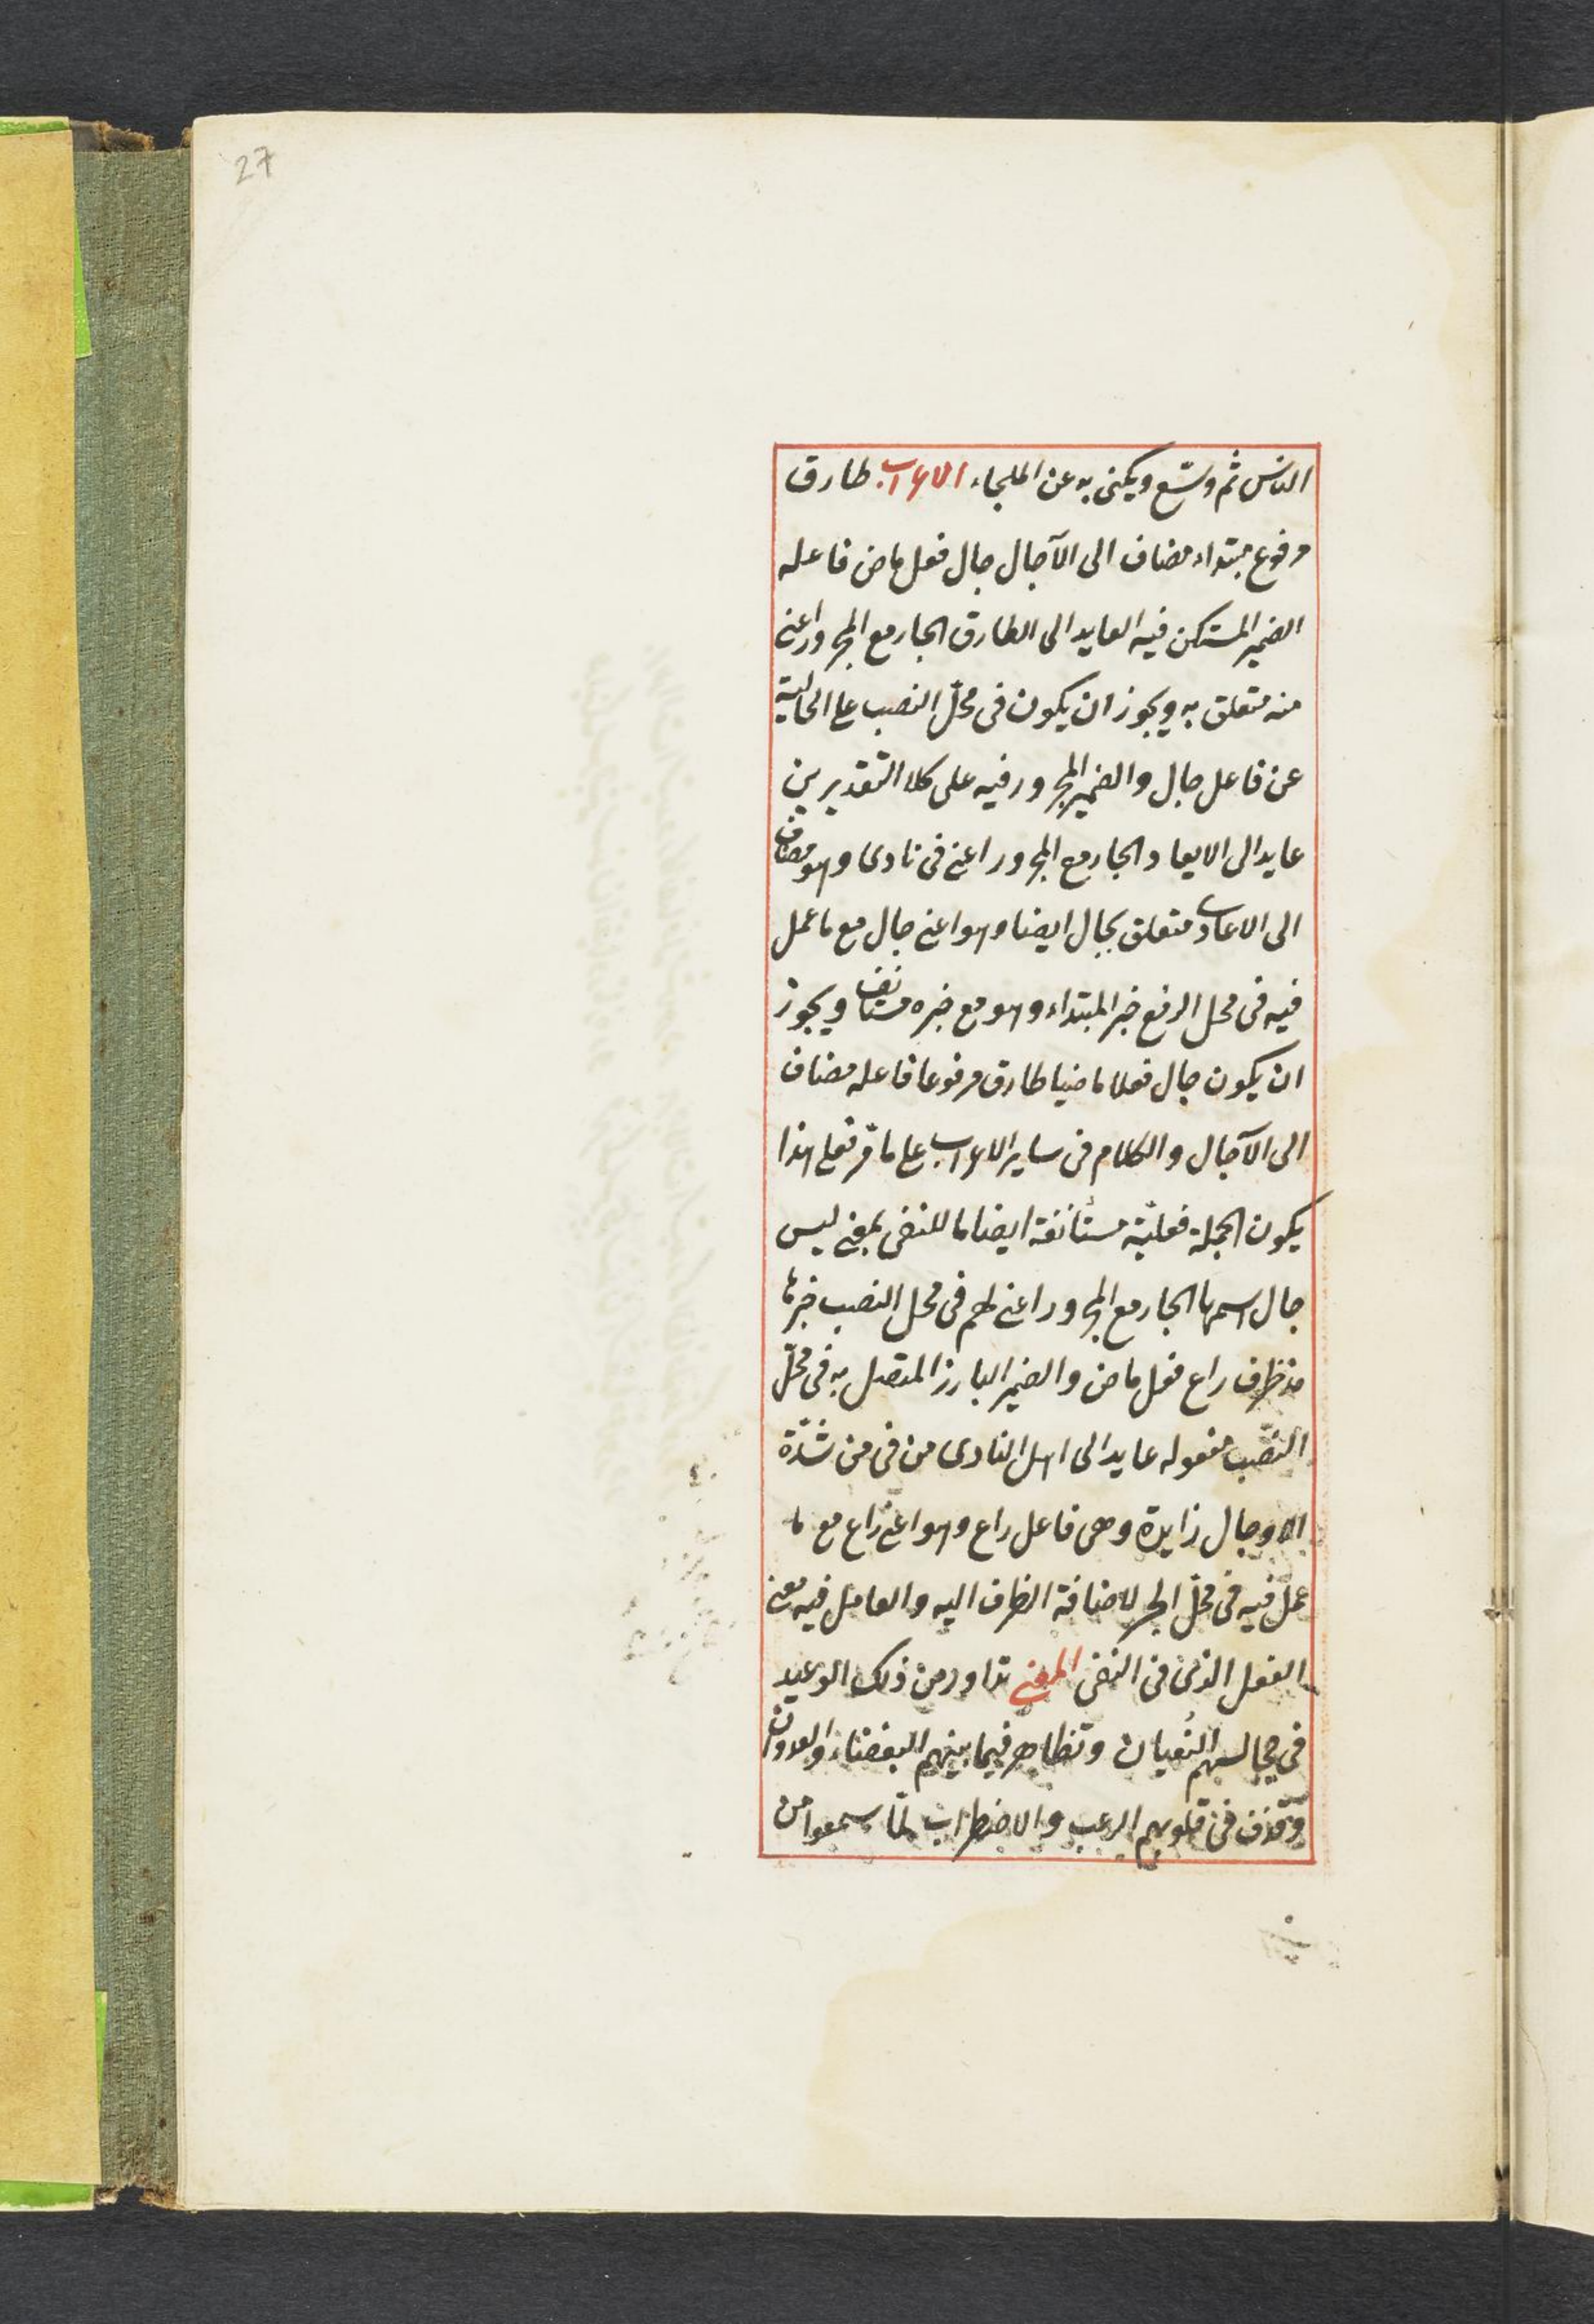 27
الناس ثم وسّع ويكنى به عن الملجاء الاعراب طارق
مرفوع مبتداء مضاف الى الآجال جال فعل ماض فاعله
الضمير المستكن فيه العايد الى الطارق الجار مع المجرور اعنى
منه متعلق به ويجوز ان يكون فى محلّ النصب على الحالية
عن فاعل جال والضمير المجرور فيه على كلا التقديرين
عايد الى الايعاد الجار مع المجرور اعنى فى نادى وهو مضاف
الى الاعادى متعلق بجال ايضا وهو اعنى جال مع ما عمل
فيه فى محل الرفع خبر المبتداء وهو مع خبره مستانف ويجوز
ان يكون جال فعلا ماضيا طارق مرفوعا فاعله مضاف
الى الآجال والكلام فى ساير الاعراب على ما مرّ فعلى هذا
يكون الجملة فعليّة مستأنفة ايضا ما للنفى بمعنى ليس
جال اسمها الجار مع المجرور اعنى لهم فى محل النصب خبرها
مذ ظرف راع فعل ماض والضمير البارز المتصل به فى محلّ
النصّب مفعوله عايد الى اهل النادى من فى من شدّة
الاوجال زايدة وهى فاعل راع وهو اعنى راع مع ما
عمل فيه فى محلّ الجر لاضافة الظرف اليه والعامل فيه معنى
الفعل الذى فى النفى المعنى تداور من ذلك الوعيد
فى مجالسهم النُعيان وتظاهر فيما بينهم البغضاء والعدوان
وقذف فى قلوبهم الرعب والاضطراب لمّا سمعوا من